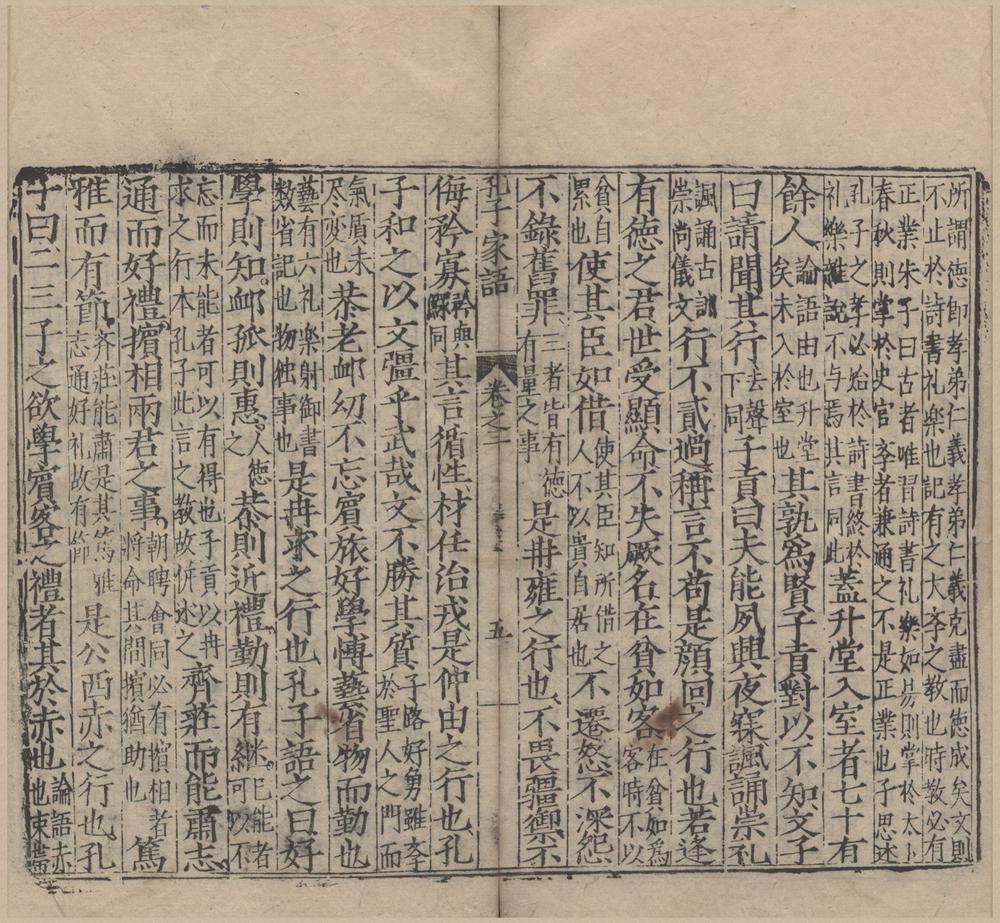 所謂德即孝弟仁義孝弟仁義克盡而德成矣文則
不止於詩書礼樂也記有之大孝之教也時教必有
正業朱子曰古者唯習詩書礼樂如易則掌於太卜
春秋則掌於史官孝者兼通之不是正業也子思述
孔子之孝必始於詩書終於
礼樂雜說不与焉其言同此
蓋升堂入室者七十有
餘人
論語由也升堂
矣未入於室也
其孰爲賢子貢對以不知文子
曰請聞其行
去聲
下同
子貢曰夫能夙興夜寐諷誦崇礼
諷誦古訓
崇尚儀文
行不貳過稱言不苟是顔回之行也若逢
有德之君世受顯命不失厥名在貧如客
在貧如爲
客時不以
貧自
累也
使其臣如借
使其臣知所借之
人不以貴自居也
不遷怒不深怨
不錄舊罪
三者皆有德
有量之事
是冉雍之行也不畏彊禦不
孔子家語
卷之二
五
侮矜寡
矜與
鰥同
其言循性材任治戎是仲由之行也孔
子和之以文彊乎武哉文不勝其質
子路好勇雖孝
於聖人之門而
氣質未
尽变也
恭老卹幼不忘賓旅好學博藝省物而勤也
藝有六礼樂射御書
数省記也物独事也
是冉求之行也孔子語之曰好
學則知卹孤則惠
人德
之
恭則近禮勤則有継
継已能者
可以不
忘而未能者可以有得也子貢以冉
求之行本孔子此言之教故併述之
齊莊而能肅志
通而好禮擯相兩君之事
朝聘會同必有擯相者
將命其間擯猶助也
篤
雅而有節
齐莊能肅是其篤雅
志通好礼故有節
是公西赤之行也孔
子曰二三子之欲學賓客之禮者其於赤也
論語赤
也束帶